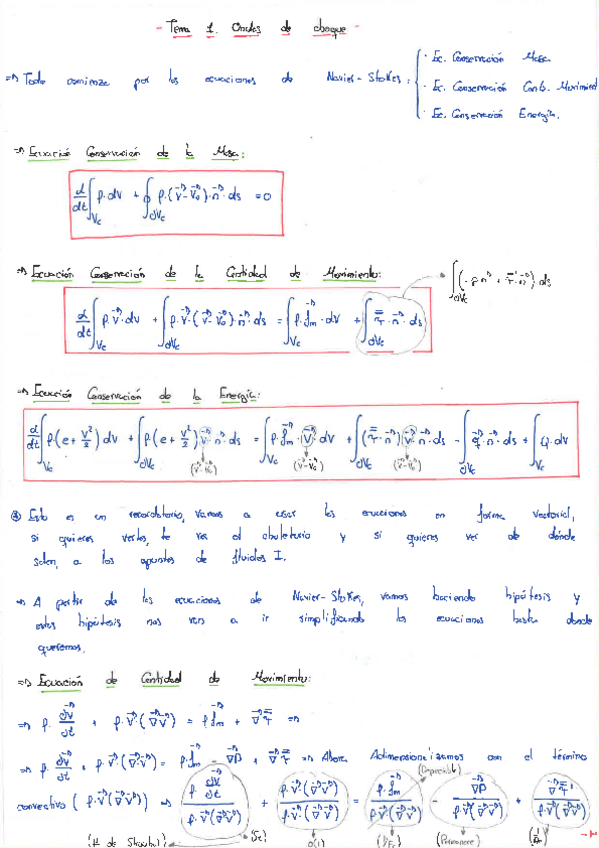 - Tema 1. Ondas de choque -
⇒ Todo comienza por las ecuaciones de Navier-Stokes:
· Ec. Conservación Masa
· Ec. Conservación Cant. Movimient
· Ec. Conservación Energía.
⇒ Ecuació Conservación de la Masa:
d/dt ∫_Vc ρ·dV + ∮_∂Vc ρ·(v⃗-v⃗₀)·n⃗·ds = 0
⇒ Ecuación Conservación de la Cantidad de Movimiento:
∫_∂Vc (-p·n⃗ + τ̿'·n⃗)·ds
d/dt ∫_Vc ρ·v⃗·dV + ∫_∂Vc ρ·v⃗·(v⃗-v⃗₀)·n⃗·ds = ∫_Vc ρ·f⃗m·dV + ∫_∂Vc τ̿·n⃗·ds
⇒ Ecuación Conservación de la Energía:
d/dt ∫_Vc ρ(e+v²/2)dV + ∫_∂Vc ρ(e+v²/2)v⃗·n⃗·ds = ∫_Vc ρ·f⃗m·v⃗·dV + ∫_∂Vc (τ̿·n⃗)v⃗·n⃗·ds - ∫_∂Vc q⃗·n⃗·ds + ∫_Vc Q·dV
(v⃗-v⃗₀) (v⃗-v⃗₀) (v⃗-v⃗₀)
Esto es un recordatorio, vamos a usar las ecuaciones en forma vectorial,
si quieres verlas, te vas al abuletario y si quieres ver de dónde
salen, a los apuntes de fluidos I.
⇒ A partir de las ecuaciones de Navier-Stokes, vamos haciendo hipótesis y
estas hipótesis nos van a ir simplificando las ecuaciones hasta donde
queramos.
⇒ Ecuación de Cantidad de Movimiento:
⇒ ρ·∂v⃗/∂t + ρ·v⃗·(∇⃗v⃗) = ρf⃗m + ∇⃗τ̿ ⇒
⇒ ρ·∂v⃗/∂t + ρ·v⃗·(∇⃗v⃗) = ρ·f⃗m - ∇⃗P + ∇⃗τ̿ ⇒ Ahora Adimensionalizamos con el término
(Despreciable)
convectivo (ρ·v⃗(∇⃗v⃗)) ⇒ ρ·∂v⃗/∂t / ρ·v⃗(∇⃗v⃗) + ρ·v⃗·(∇⃗v⃗) / ρ·v⃗·(∇⃗v⃗) = ρ·f⃗m / ρ·v⃗(∇⃗v⃗) - ∇⃗P / ρ·v⃗(∇⃗v⃗) + ∇⃗τ̿' / ρ·v⃗(∇⃗v⃗)
(St) O(1) (1/Fr) (Permanece)